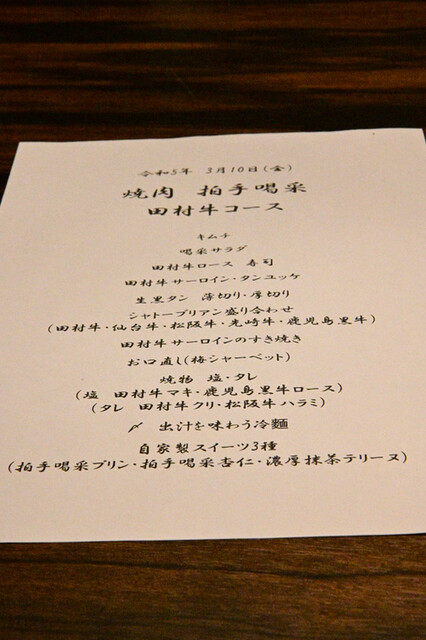 令和5年 3月10日(金)
焼肉 拍手喝采
田村牛コース
キムチ
喝采サラダ
田村牛ロース 寿司
田村牛サーロイン・タンユッケ
生黒タン 薄切り・厚切り
シャトーブリアン盛り合わせ
(田村牛・仙台牛・松阪牛・尾崎牛・鹿児島黒牛)
田村牛サーロインのすき焼き
お口直し(梅シャーベット)
焼物 塩・タレ
(塩 田村牛マキ・鹿児島黒牛ロース)
(タレ 田村牛クリ・松阪牛ハラミ)
〆 出汁を味わう冷麵
自家製スイーツ3種
(拍手喝采プリン・拍手喝采杏仁・濃厚抹茶テリーヌ)